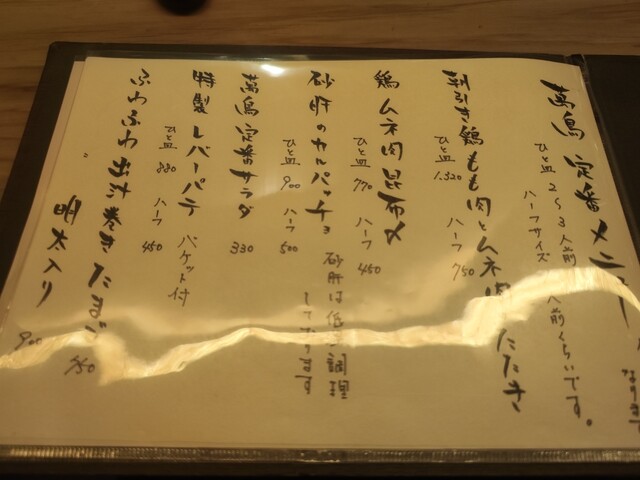 萬鳥 定番メニュー
ひと皿 2〜3人前
ハーフサイズ 人前くらいです。
なります
朝引き鶏もも肉とムネ肉 たたき
ひと皿 1.320 ハーフ 750
鶏ムネ肉昆布〆
ひと皿 770 ハーフ 450
砂肝のカルパッチョ 砂肝は低 調理
しております
ひと皿 900 ハーフ 500
萬鳥定番サラダ 330
特製レバーパテ バケット付
ひと皿 880 ハーフ 450
ふわふわ出汁巻きたまご 750
〃 明太入り 900